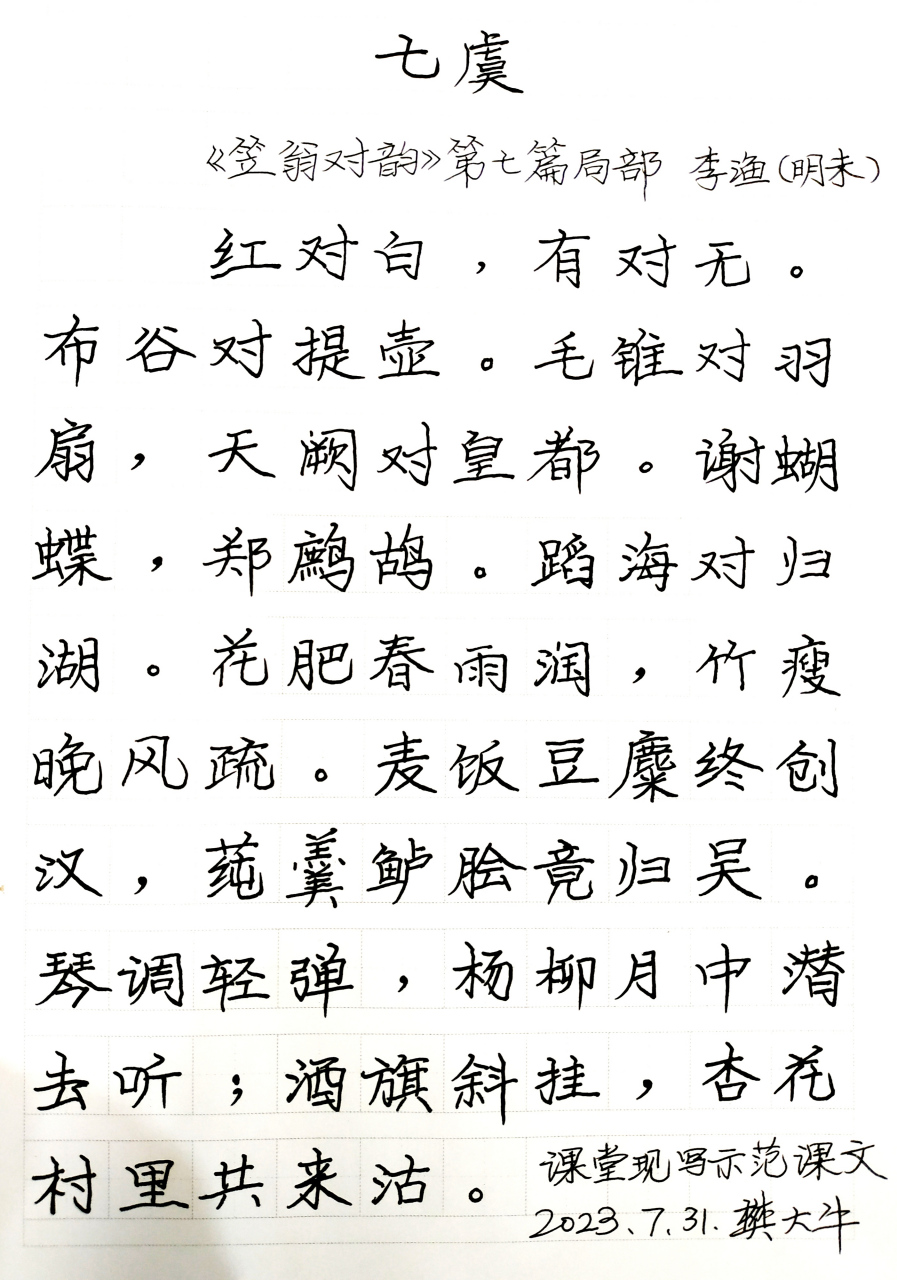 七虞
《笠翁对韵》第七篇局部 李渔（明末）
红对白，有对无。
布谷对提壶。毛锥对羽
扇，天阙对皇都。谢蝴
蝶，郑鹧鸪。蹈海对归
湖。花肥春雨润，竹瘦
晚风疏。麦饭豆糜终创
汉，莼羹鲈脍竟归吴。
琴调轻弹，杨柳月中潜
去听；酒旗斜挂，杏花
村里共来沽。
课堂现写示范课文
2023.7.31.樊大牛